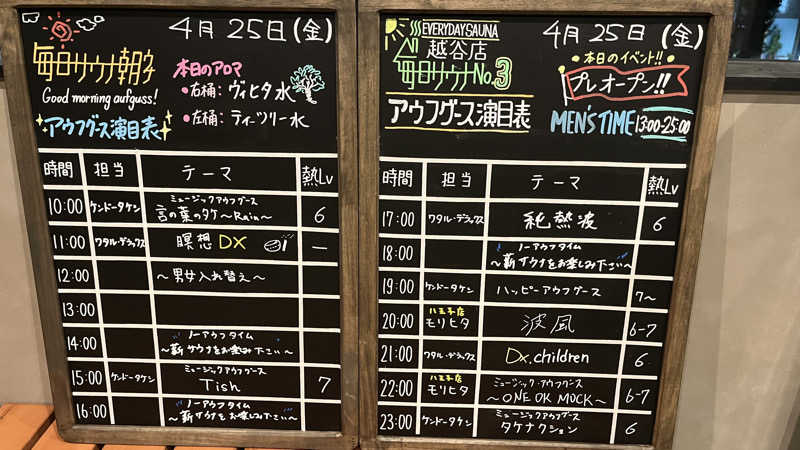 4月25日(金)
毎日サウナ朝
Good morning aufguss!
アウフグース演目表
本日のアロマ
・右桶:ヴィヒタ水
・左桶:ティーツリー水
時間 担当 テーマ 熱Lv
10:00 ケンドータケン ミュージックアウフグース
言の葉のタケ〜Rain〜 6
11:00 ワタル・デラックス 瞑想DX —
12:00 〜男女入れ替え〜
13:00
14:00 ノーアウフタイム
〜薪サウナをお楽しみ下さい〜
15:00 ケンドータケン ミュージックアウフグース
Tish 7
16:00 ノーアウフタイム
〜薪サウナをお楽しみ下さい〜
EVERYDAYSAUNA
越谷店
毎日サウナNo.3
アウフグース演目表
4月25日(金)
本日のイベント!!
プレオープン!!
MEN'S TIME 13:00-25:00
時間 担当 テーマ 熱Lv
17:00 ワタル・デラックス 純熱波 6
18:00 ノーアウフタイム
〜薪サウナをお楽しみ下さい〜
19:00 ケンドータケン ハッピーアウフグース 7〜
20:00 八王子店
モリヒタ 波風 6-7
21:00 ワタル・デラックス Dx.children 6
22:00 八王子店
モリヒタ ミュージック・アウフグース
〜ONE OK MOCK〜 6-7
23:00 ケンドータケン ミュージックアウフグース
タケナクション 6